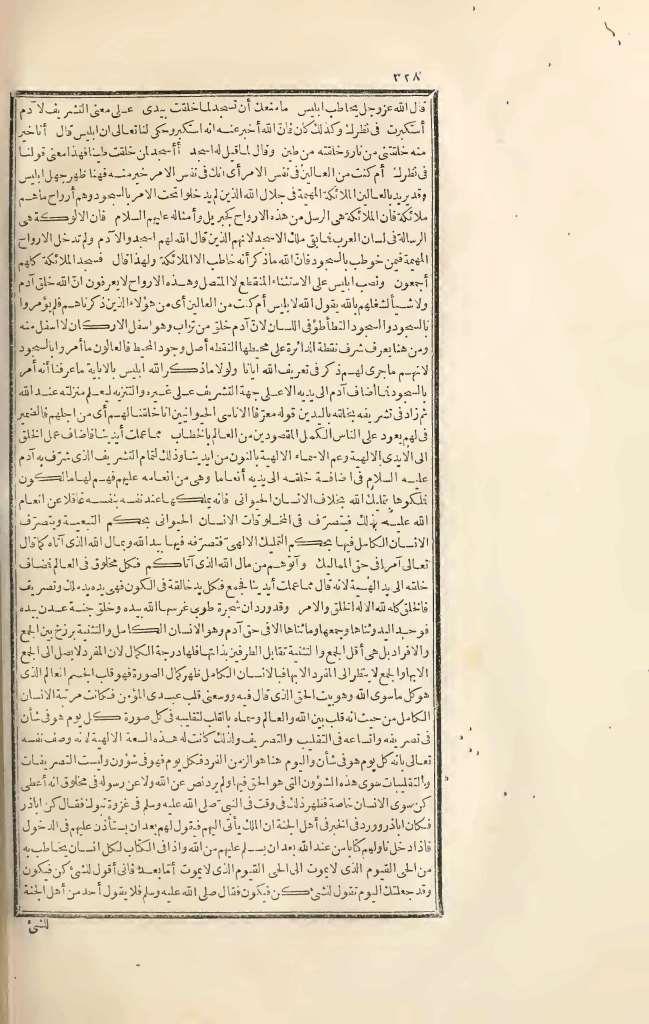 ٣٢٨
قال الله عز وجل يخاطب ابليس ما منعك أن تسجد لما خلقت بيدى على معنى التشريف لآدم
أستكبرت فى نظرك وكذلك كان فانّ الله أخبر عنه انه استكبر وحكى لنا تعالى ان ابليس قال أنا خير
منه خلقتنى من نار وخلقته من طين وقال لما قيل له اسجد أأسجد لمن خلقت طينا فهذا معنى قولنا
فى نظرك أم كنت من العالين فى نفس الامر أى انك فى نفس الامر خير منه فهنا ظهر جهل ابليس
وقد يريد بالعالين الملائكة المهيمة فى جلال الله الذين لم يدخلوا تحت الامر بالسجود وهم أرواح ما هم
ملائكة فان الملائكة هى الرسل من هذه الارواح كجبريل وأمثاله عليهم السلام فان الالوكة هى
الرسالة فى لسان العرب فابقى ملك الا سجد لانهم الذين قال الله لهم اسجدوا لآدم ولم تدخل الارواح
المهيمة فيمن خوطب بالسجود فانّ الله ما ذكر أنه خاطب الا الملائكة ولهذا قال فسجد الملائكة كلهم
أجمعون ونصب ابليس على الاستثناء المنقطع لا المتصل وهذه الارواح لا يعرفون انّ الله خلق آدم
ولا شيأ لشغلهم بالله يقول الله لابليس أم كنت من العالين أى من هؤلاء الذين ذكرناهم فلم يؤمروا
بالسجود والسجود التطأطؤ فى اللسان لانّ آدم خلق من تراب وهو اسفل الاركان لا اسفل منه
ومن هنا يعرف شرف نقطة الدائرة على محيطها النقطة أصل وجود المحيط فالعالون ما أمروا بالسجود
لانهم ما جرى لهم ذكر فى تعريف الله ايانا ولولا ما ذكر الله ابليس بالاباية ما عرفنا أنه أمر
بالسجود فما أضاف آدم الى يديه الا على جهة التشريف على غيره والتنويه ليعلم منزلته عند الله
ثم زاد فى تشريفه بخلقه باليدين قوله معرّفا الاناسى الحيوانيين انا خلقنا لهم أى من اجلهم فالضمير
فى لهم يعود على الناس الكمل المقصودين من العالم بالخطاب مما عملت أيدينا فاضاف عمل الخلق
الى الايدى الالهية وعم الاسماء الالهية بالنون من أيدينا وذلك لتمام التشريف الذى شرّف به آدم
عليه السلام فى اضافة خلقه الى يديه أنعاما وهى من انعامه عليهم فهم لها مالكون
تملكوها بتمليك الله بخلاف الانسان الحيوانى فانه يملكها عند نفسه بنفسه غافلا عن انعام
الله عليه بذلك فيتصرّف فى المخلوقات الانسان الحيوانى بحكم التبعية ويتصرّف
الانسان الكامل فيها بحكم التمليك الالهى فتصرّفه فيها بيد الله وبمال الله الذى آتاه كما قال
تعالى آمرا فى حق المماليك وآتوهم من مال الله الذى آتاكم فكل مخلوق فى العالم فضاف
خلقه الى يد الهية لانه قال مما عملت أيدينا فجمع فكل يد خالقة فى الكون فهى يده يد ملك وتصريف
فالخلق كله لله ألا له الخلق والامر وقد ورد ان شجرة طوبى غرسها الله بيده وخلق جنة عدن بيده
فوحد اليد وثناها وجمعها وما ثناها الا فى حق آدم وهو الانسان الكامل والتثنية برزخ بين الجمع
والافراد بل هى أقل الجمع والتثنية تقابل الطرفين بذاتها فلها درجة الكمال لان المفرد لا يصل الى الجمع
الا بها والجمع لا ينظر الى المفرد الا بها فبالانسان الكامل ظهر كمال الصورة فهو قلب لجسم العالم الذى
هو كل ما سوى الله وهو بيت الحق الذى قال فيه ووسعنى قلب عبدى المؤمن فكانت مرتبة الانسان
الكامل من حيث انه قلب بين الله والعالم وسماه بالقلب لتقليبه فى كل صورة كل يوم هو فى شأن
فى تصريفه واتساعه فى التقليب والتصريف ولذلك كانت له هذه السعة الالهية لانه وصف نفسه
تعالى بانه كل يوم هو فى شأن واليوم هنا هو الزمن الفرد فكل يوم فهو فى شؤون وليست التصريفات
والتقليبات سوى هذه الشؤون التى هو الحق فيها ولم يرد نص عن الله ولا عن رسوله فى مخلوق انه أعطى
كن سوى الانسان خاصة فظهر ذلك فى وقت فى النبى صلى الله عليه وسلم فى غزوة تبوك فقال كن أبا ذر
فكان أبا ذر وورد فى الخبر فى أهل الجنة ان الملك يأتى اليهم فيقول لهم بعد ان يستأذن عليهم فى الدخول
فاذا دخل ناولهم كتابا من عند الله بعد ان يسلم عليهم من الله واذا فى الكتاب لكل انسان يخاطب به
من الحى القيوم الذى لا يموت الى الحى القيوم الذى لا يموت أما بعد فانى أقول للشئ كن فيكون
وقد جعلتك اليوم تقول لشئ كن فيكون فقال صلى الله عليه وسلم فلا يقول أحد من أهل الجنة
للشئ